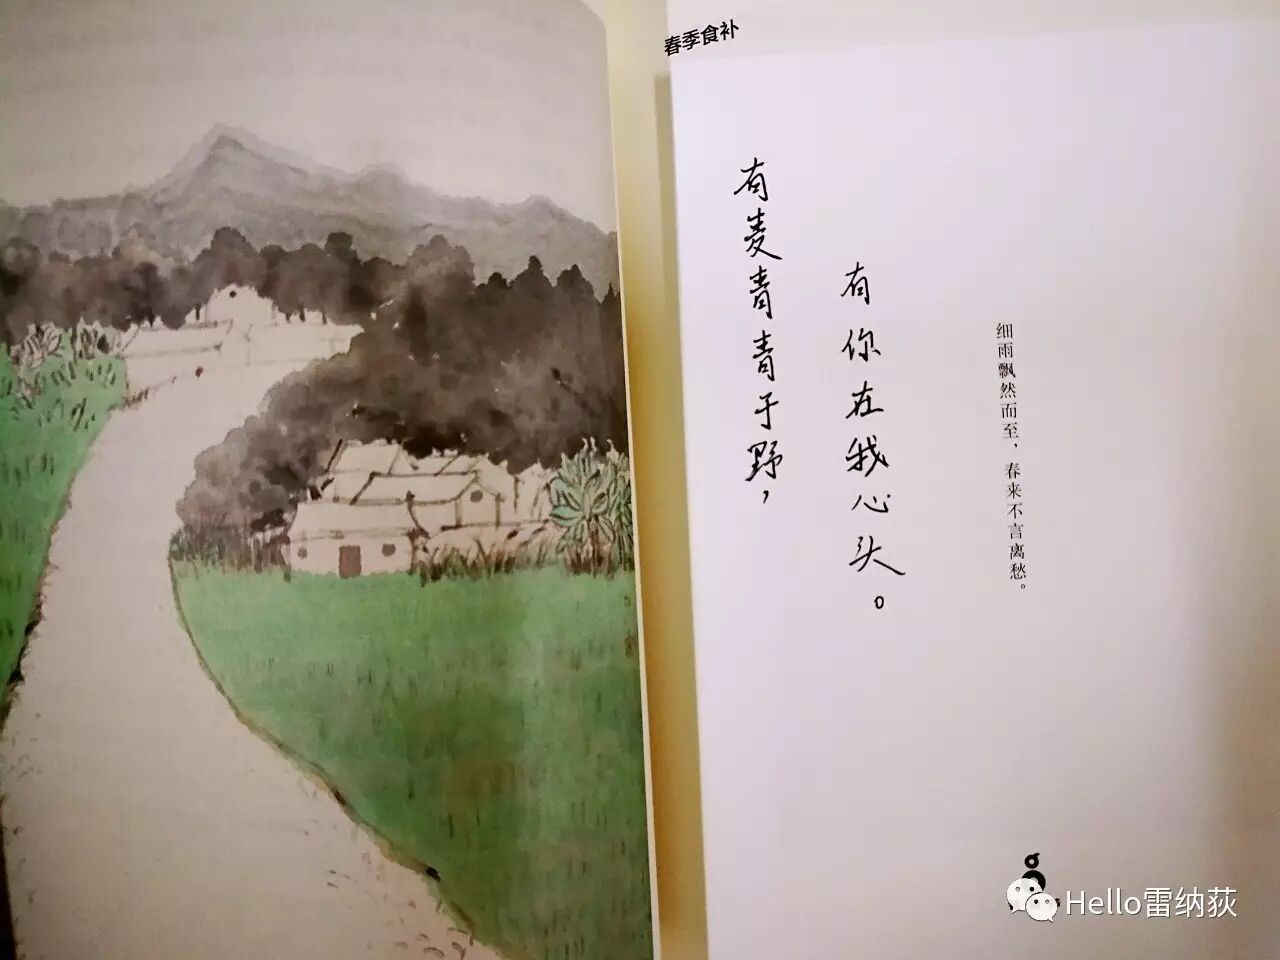 春季食补
有麦青青于野，
有你在我心头。
细雨飘然而至，春来不言离愁。
Hello雷纳荻